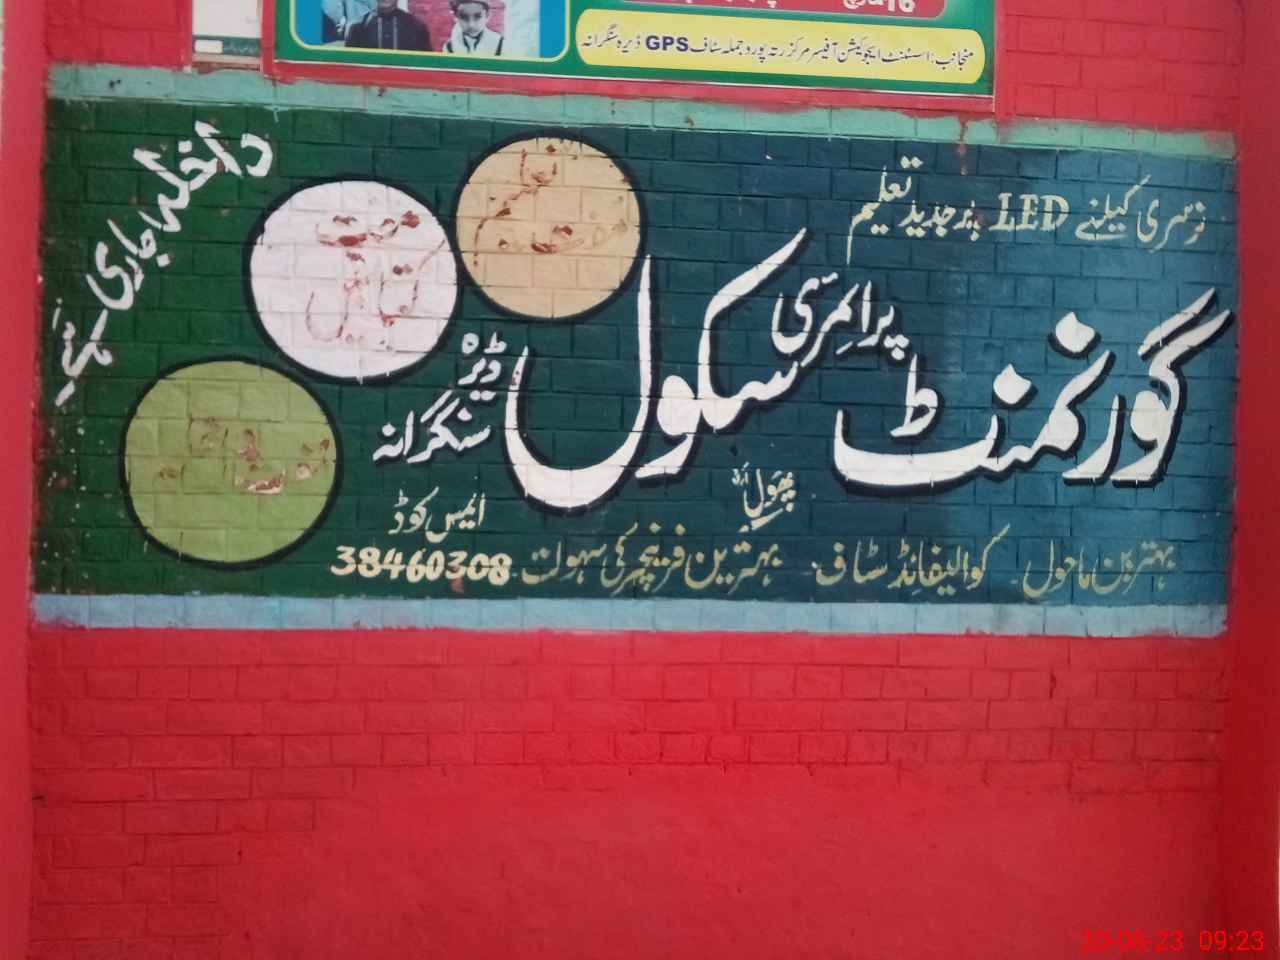 منجانب: اسسٹنٹ ایجوکیشن آفیسر مرکز رتہ پور و جملہ سٹاف GPS ڈیرہ سنگرانہ
داخلہ جاری ہے
نرسری کیلئے LED پر جدید تعلیم
تعلیم مفت
مفت کتابیں
گورنمنٹ پرائمری سکول ڈیرہ سنگرانہ
پھول نگر
ایمس کوڈ
38460308
بہترین ماحول کوالیفائڈ سٹاف بہترین فرنیچر کی سہولت
30-06-23 09:23